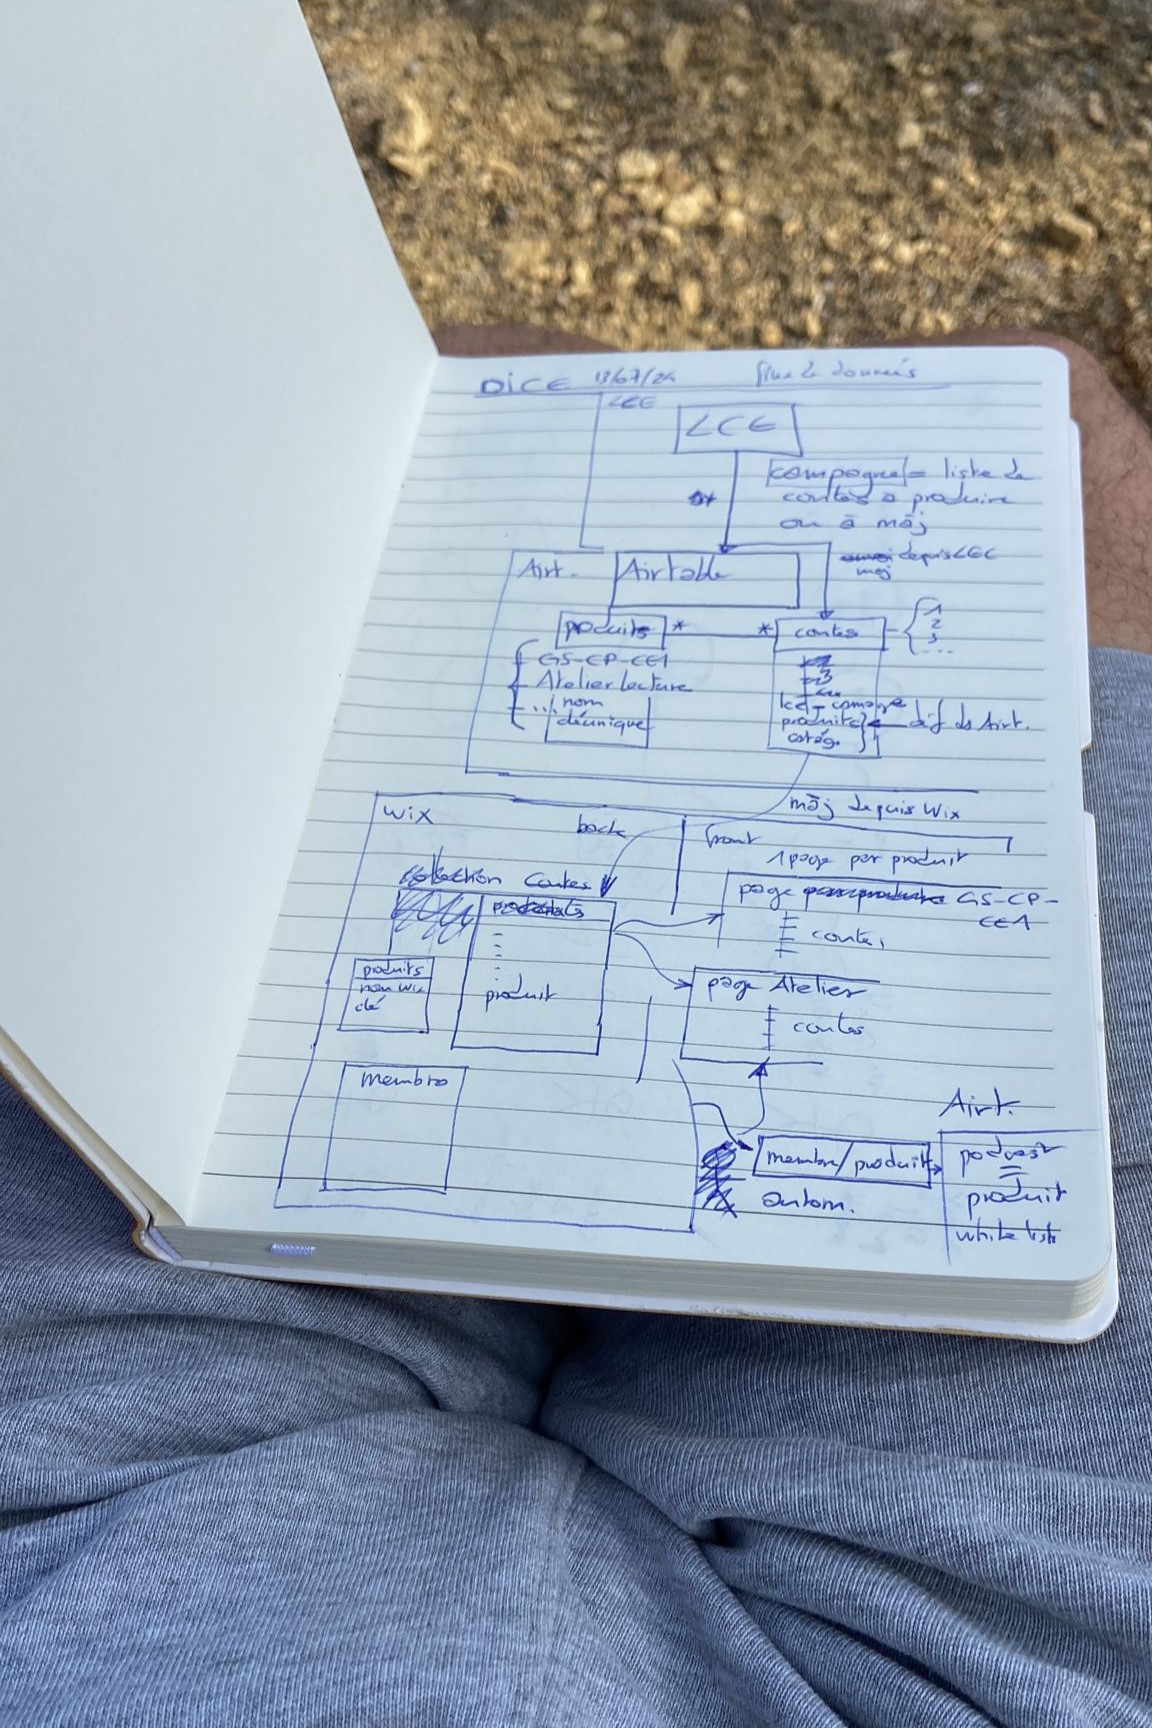 DICE 13/07/24 flux de données
LCE
LCE
campagne = liste de
contes à produire
ou à màj
depuis LCE
màj
Airt.
Airtable
produits * * contes
1
2
3
...
GS-CP-CE1
Atelier lecture
... nom
clé unique
produits
catég.
déf ds Airt.
màj depuis Wix
Wix
back
front
1 page par produit
collection Contes
page GS-CP-
CE1
contes
produits
nom Wix
clé
produit
page Atelier
contes
membres
Airt.
membre/produit
autom.
podcast
=
produit
white list